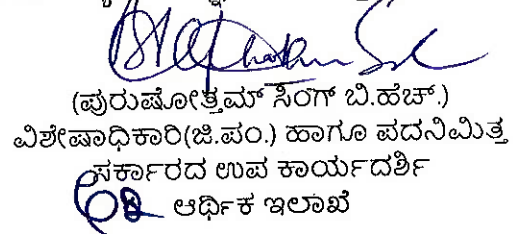 (ಪುರುಷೋತ್ತಮ್ ಸಿಂಗ್ ಬಿ.ಹೆಚ್.)
ವಿಶೇಷಾಧಿಕಾರಿ(ಜಿ.ಪಂ.) ಹಾಗೂ ಪದನಿಮಿತ್ತ
ಸರ್ಕಾರದ ಉಪ ಕಾರ್ಯದರ್ಶಿ
ಆರ್ಥಿಕ ಇಲಾಖೆ